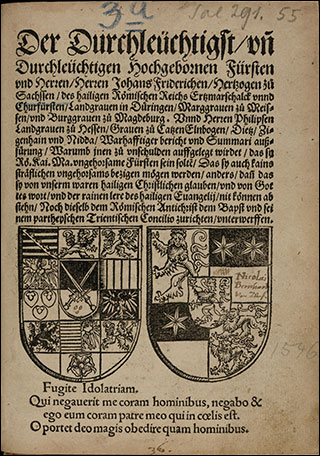 3a
Sal 291. 55
Der Durchleüchtigst/ vñ
Durchleüchtigen Hochgebornen Fürsten
vnd Herren/ Herren Johans Friderichen/ Hertzogen zů
Sachssen/ des hailigen Römischen Reichs Ertzmarschalck vnnd
Churfürsten/ Landgrauen in Düringen/ Marggrauen zů Meis-
sen/ vnd Burggrauen zů Magdeburg. Vnnd Herren Philipsen
Landgrauen zů Hessen/ Grauen zů Catzen Elnbogen/ Dietz/ Zi-
genhain vnd Nidda/ Warhafftiger bericht vnd Summari auß-
fürung/ Warumb jnen zů vnschulden auffgelegt wirdet/ das sy
Rö. Kai. Ma. vngehorsame Fürsten sein solln/ Das sy auch kains
sträflichen vngehorsams bezigen mögen werden/ anders/ daß das
sy von vnserm waren hailigen Christlichen glauben/ vnd von Got
tes wort/ vnd der rainen lere des hailigen Euangelij/ nit können ab
stehn/ Noch dieselb dem Römischen Antichrist dem Bapst vnd sei
nem partheyschen Trientischen Concilio zurichten/ vnterwerffen.
Nicolai
1546
Fugite Idolatriam.
Qui negauerit me coram hominibus, negabo &
ego eum coram patre meo qui in cœlis est.
Oportet deo magis obedire quam hominibus.
36.